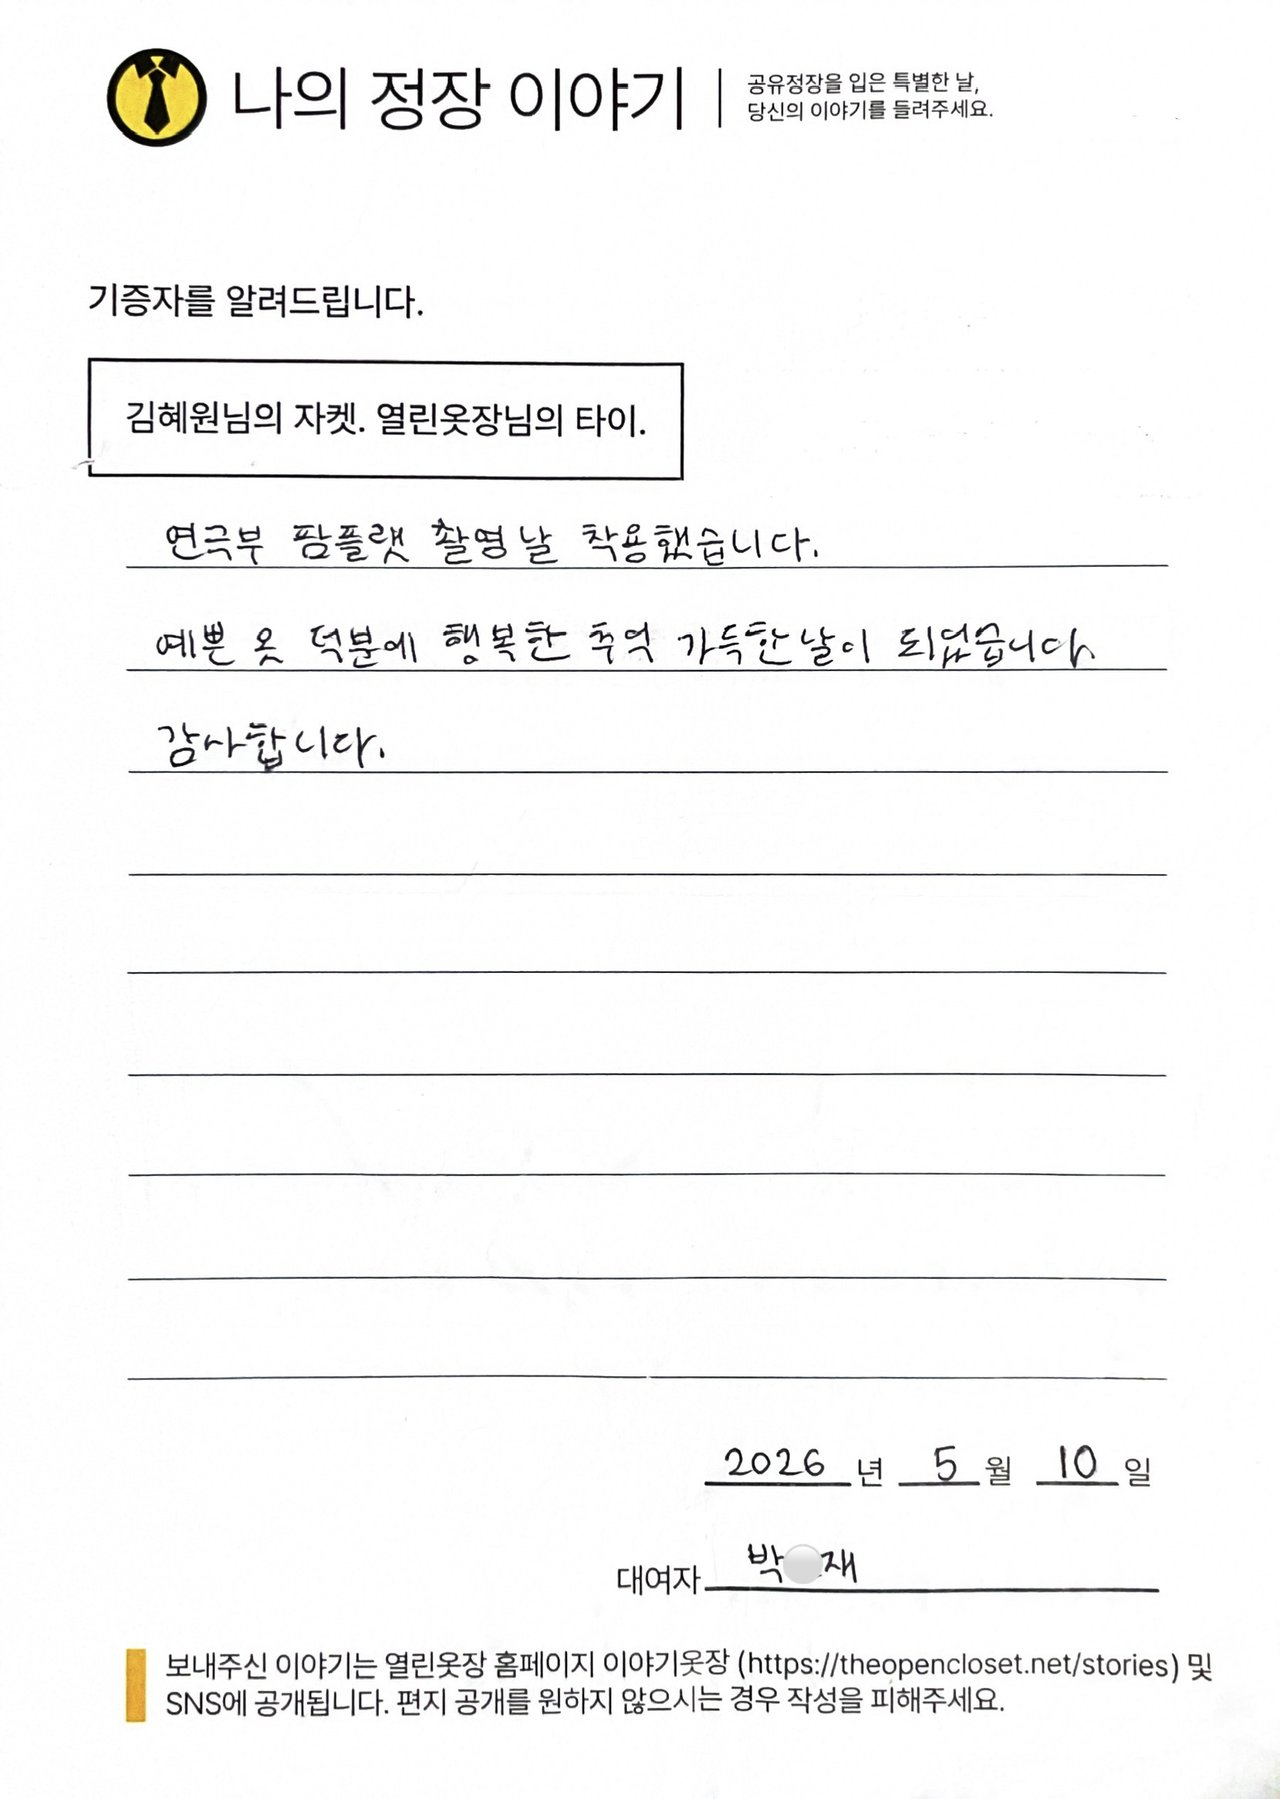 나의 정장 이야기
공유정장을 입은 특별한 날,
당신의 이야기를 들려주세요.
기증자를 알려드립니다.
김혜원님의 자켓. 열린옷장님의 타이.
연극부 팜플랫 촬영날 착용했습니다.
예쁜 옷 덕분에 행복한 추억 가득한날이 되었습니다.
감사합니다.
2026 년 5 월 10 일
대여자 박 재
보내주신 이야기는 열린옷장 홈페이지 이야기옷장 (https://theopencloset.net/stories) 및
SNS에 공개됩니다. 편지 공개를 원하지 않으시는 경우 작성을 피해주세요.